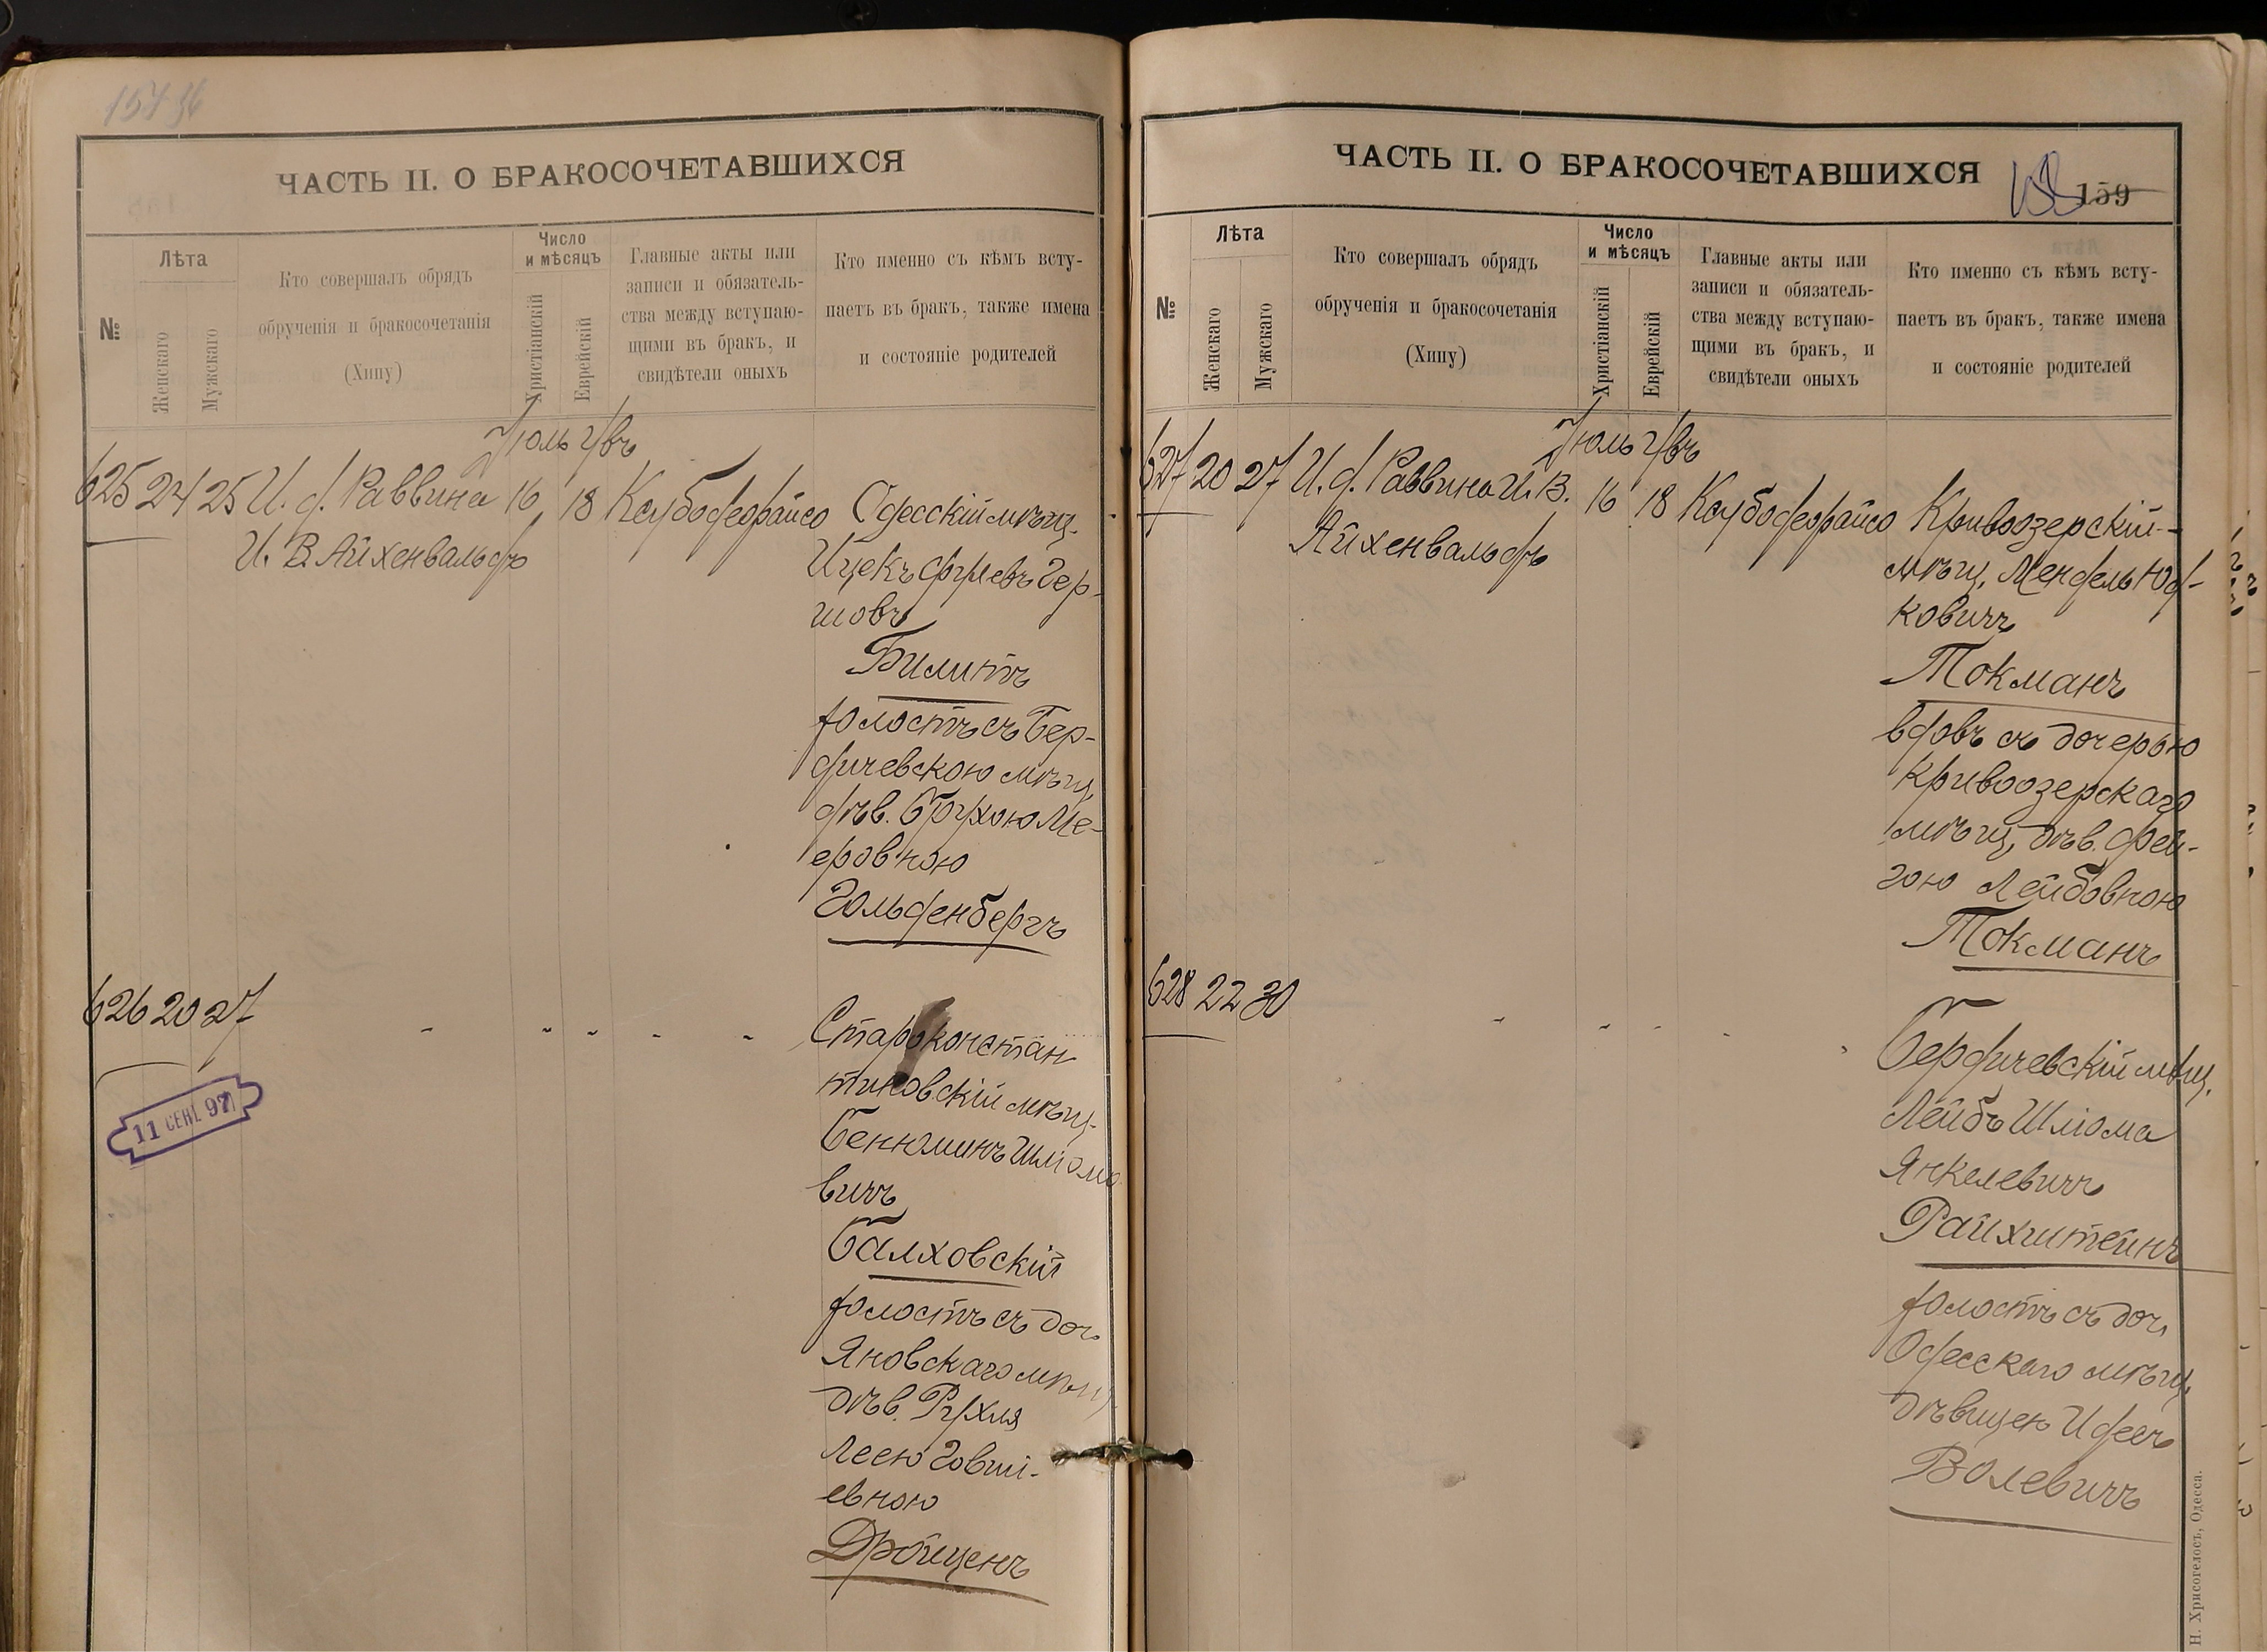 ЧАСТЬ II. О БРАКОСОЧЕТАВШИХСЯ
№
Лѣта
Женскаго
Мужскаго
Кто совершалъ обрядъ
обрученія и бракосочетанія
(Хипу)
Число
и мѣсяцъ
Христіанскій
Еврейскій
Главные акты или
записи и обязатель-
ства между вступаю-
щими въ бракъ, и
свидѣтели оныхъ
Кто именно съ кѣмъ всту-
паетъ въ бракъ, также имена
и состояніе родителей
Іюль
625 24 25 И. д. Раввина 16 18
И. В. Айхенвальдъ
Одесскій мѣщ.
Ицекъ Гер-
шовъ
Билитъ
холостъ съ Бер-
дичевскою мѣщ.
дѣв. Брухою Ме-
еровною
Гольденбергъ
626 20 27
Староконстан
тиновскій мѣщ.
Бенюминъ Шліомо
вичъ
Балховскій
холостъ съ доч.
Яновскаго мѣщ.
дѣв. Рухля
Леею Говші-
евною
Дройценъ
11 СЕН 97
ЧАСТЬ II. О БРАКОСОЧЕТАВШИХСЯ
159
№
Лѣта
Женскаго
Мужскаго
Кто совершалъ обрядъ
обрученія и бракосочетанія
(Хипу)
Число
и мѣсяцъ
Христіанскій
Еврейскій
Главные акты или
записи и обязатель-
ства между вступаю-
щими въ бракъ, и
свидѣтели оныхъ
Кто именно съ кѣмъ всту-
паетъ въ бракъ, также имена
и состояніе родителей
Іюль
627 20 27 И. д. Раввина И. В. 16 18
Айхенвальдъ
Кривоозерскій
мѣщ. Мендель Юд-
ковичъ
Токманъ
вдовъ съ дочерью
Кривоозерскаго
мѣщ. дѣв. Фей-
гою Лейбовною
Токманъ
628 22 30
Бердичевскій мѣщ.
Лейбъ Шліома
Янкелевичъ
Райхштейнъ
холостъ съ доч.
Одесскаго мѣщ.
дѣвицею Идесъ
Волевичъ
Н. Хрисогелосъ, Одесса.